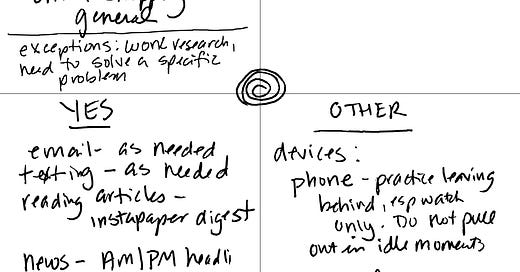 general
exceptions: work research,
need to solve a specific
problem
YES
email- as needed
texting - as needed
reading articles -
instapaper digest
news - AM/PM headli
OTHER
devices:
phone - practice leaving
behind, esp watch
only. Do not pull
out in idle moments